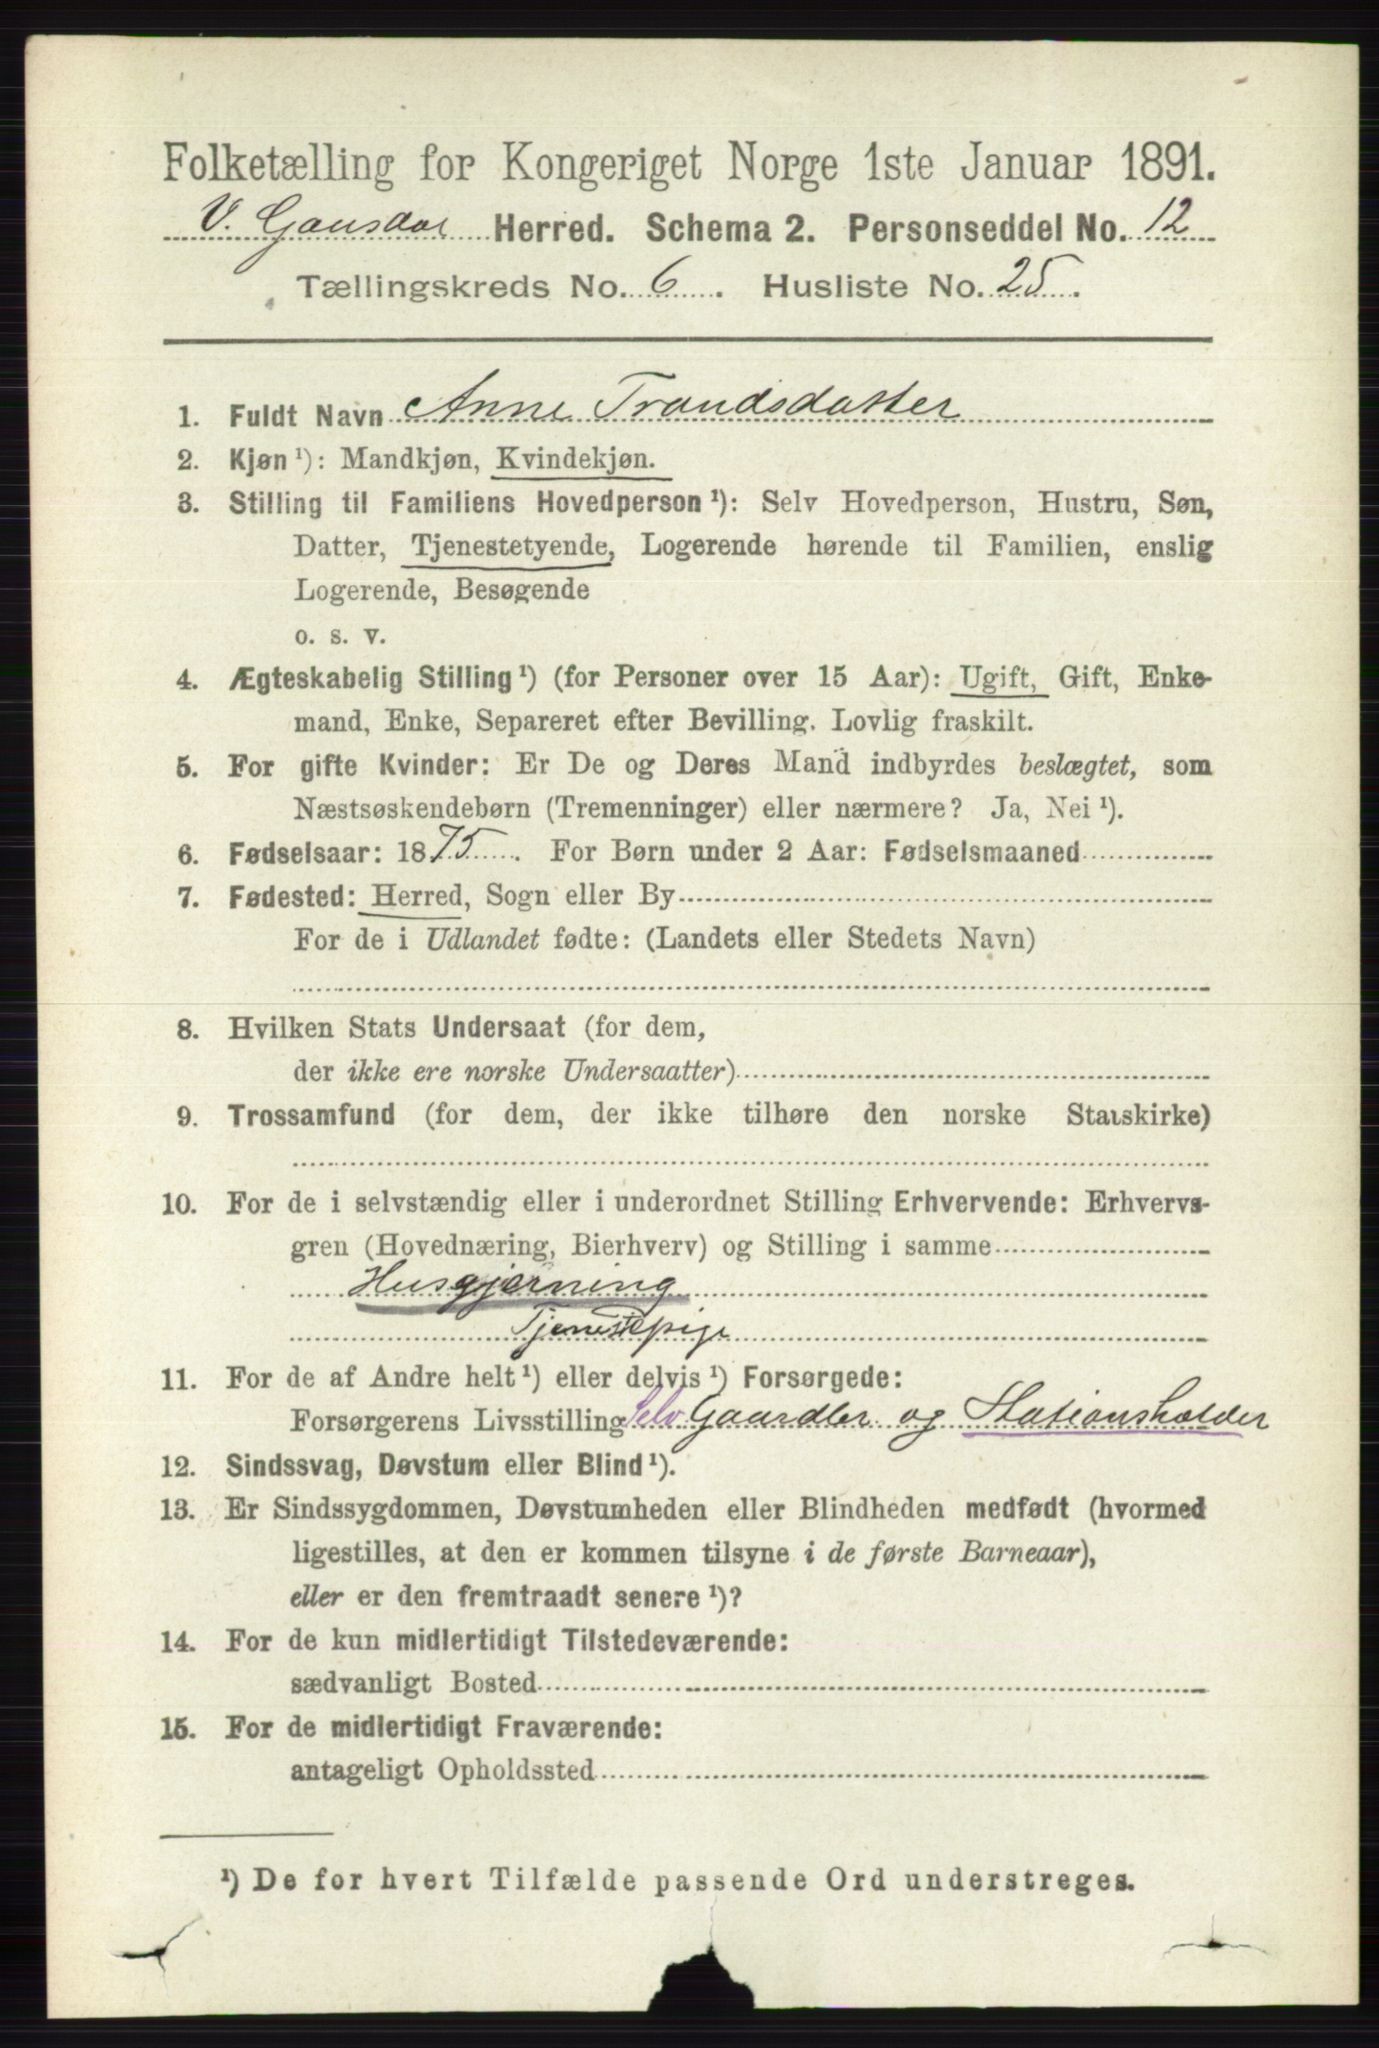 Folketælling for Kongeriget Norge 1ste Januar 1891.
V. Gausdal Herred. Schema 2. Personseddel No. 12
Tællingskreds No. 6. Husliste No. 25.
1. Fuldt Navn Anne Trondsdatter
2. Kjøn ¹): Mandkjøn, Kvindekjøn.
3. Stilling til Familiens Hovedperson ¹): Selv Hovedperson, Hustru, Søn,
Datter, Tjenestetyende, Logerende hørende til Familien, enslig
Logerende, Besøgende
o. s. v.
4. Ægteskabelig Stilling ¹) (for Personer over 15 Aar): Ugift, Gift, Enke-
mand, Enke, Separeret efter Bevilling. Lovlig fraskilt.
5. For gifte Kvinder: Er De og Deres Mand indbyrdes beslægtet, som
Næstsøskendebørn (Tremenninger) eller nærmere? Ja, Nei ¹).
6. Fødselsaar: 1875. For Børn under 2 Aar: Fødselsmaaned
7. Fødested: Herred, Sogn eller By
For de i Udlandet fødte: (Landets eller Stedets Navn)
8. Hvilken Stats Undersaat (for dem,
der ikke ere norske Undersaatter)
9. Trossamfund (for dem, der ikke tilhøre den norske Statskirke)
10. For de i selvstændig eller i underordnet Stilling Erhvervende: Erhvervs-
gren (Hovednæring, Bierhverv) og Stilling i samme
Husgjerning
Tjenestepige
11. For de af Andre helt ¹) eller delvis ¹) Forsørgede:
Forsørgerens Livsstilling Selv Gaardbr. og Stationsholder
12. Sindssvag, Døvstum eller Blind ¹).
13. Er Sindssygdommen, Døvstumheden eller Blindheden medfødt (hvormed
ligestilles, at den er kommen tilsyne i de første Barneaar),
eller er den fremtraadt senere ¹)?
14. For de kun midlertidigt Tilstedeværende:
sædvanligt Bosted
15. For de midlertidigt Fraværende:
antageligt Opholdssted
¹) De for hvert Tilfælde passende Ord understreges.